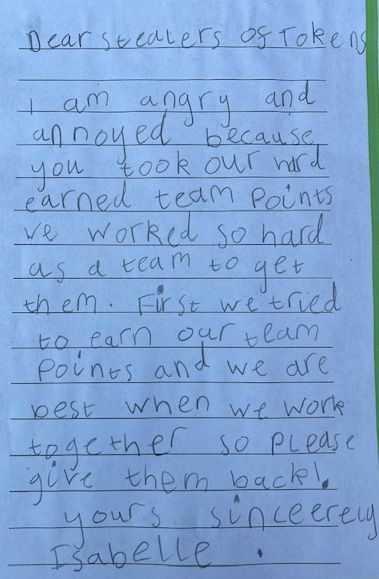 Dear stealers of Tokens
I am angry and
annoyed because
you took our hard
earned team points
ve worked so hard
as a team to get
them. First we tried
to earn our team
points and we are
best when we work
together so please
give them back!.
yours sinceerely
Isabelle .